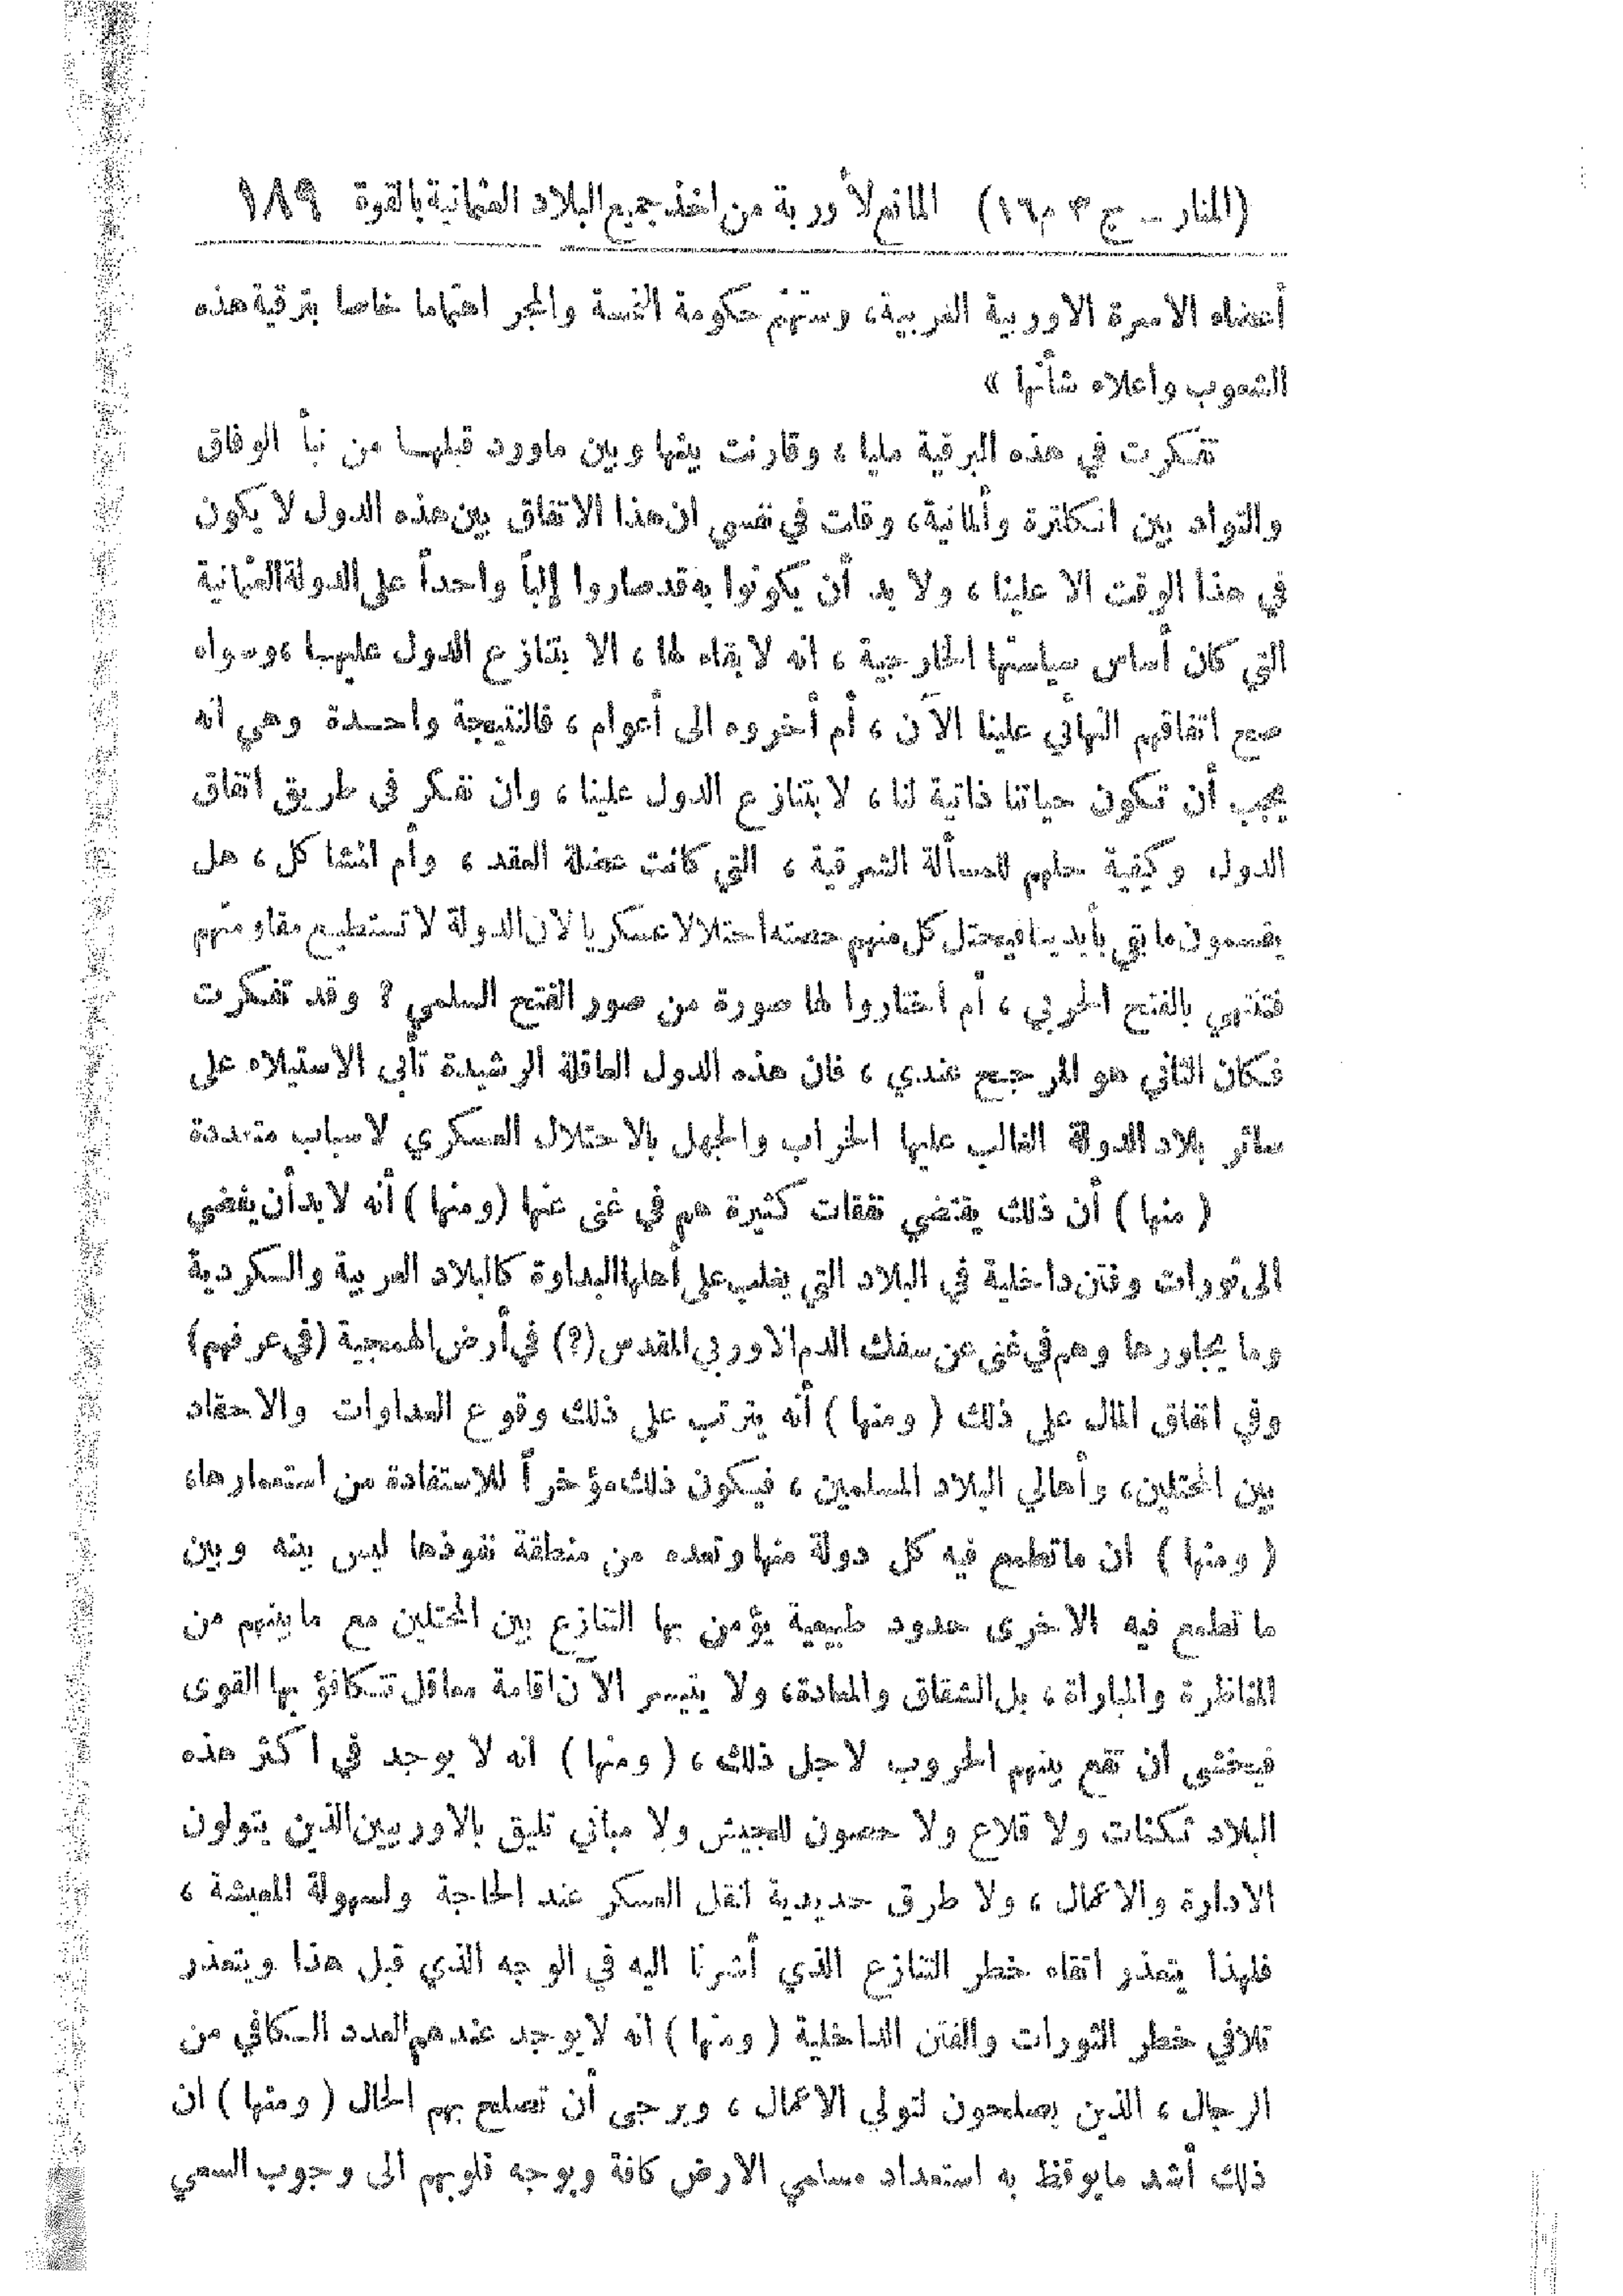 (المنار – ج ٣ م ١٦) المانع لأوربة من اخذ جميع البلاد العثمانية بالقوة ١٨٩
أعضاء الاسرة الاوربية الغربية، وستهتم حكومة النمسة والمجر اهتماما خاصا بترقية هذه
الشعوب واعلاء شأنها »
تفكرت في هذه البرقية مليا ، وقارنت بينها وبين ماورد قبلها من نبأ الوفاق
والتواد بين انكلترة وألمانية، وقلت في نفسي ان هذا الاتفاق بين هذه الدول لا يكون
في هذا الوقت الا علينا ، ولا بد أن يكونوا به قد صاروا إلباً واحداً على الدولة العثمانية
التي كان أساس سياستها الخارجية ، انه لا بقاء لها ، الا بتنازع الدول عليها ، وسواء
صح اتفاقهم النهائي علينا الآن ، أم أخروه الى أعوام ، فالنتيجة واحدة وهي انه
يجب أن تكون حياتنا ذاتية لنا ، لا بتنازع الدول علينا ، وان نفكر في طريق اتفاق
الدول وكيفية حلهم للمسألة الشرقية ، التي كانت عضلة العقد ، وأم المشاكل ، هل
يقسمون ما بقي بأيدينا فيحتل كل منهم حصته احتلالا عسكريا لان الدولة لا تستطيع مقاومتهم
فتنتهي بالفتح الحربي ، أم اختاروا لها صورة من صور الفتح السلمي ؟ وقد تفكرت
فكان الثاني هو المرجح عندي ، فان هذه الدول العاقلة الرشيدة تأبى الاستيلاء على
سائر بلاد الدولة الغالب عليها الخراب والجهل بالاحتلال العسكري لاسباب متعددة
( منها ) أن ذلك يقتضي نفقات كثيرة هم في غنى عنها (ومنها ) أنه لا بد أن يفضي
الى ثورات وفتن داخلية في البلاد التي يغلب على أهلها البداوة كالبلاد العربية والكردية
وما يجاورها وهم في غنى عن سفك الدم الاوربي المقدس (؟) في أرض الهمجية (في عرفهم)
وفي انفاق المال على ذلك ( ومنها ) أنه يترتب على ذلك وقوع العداوات والاحقاد
بين المحتلين، وأهالي البلاد المسلمين ، فيكون ذلك مؤخراً للاستفادة من استعمارها،
( ومنها ) ان ما تطمع فيه كل دولة منها وتعده من منطقة نفوذها ليس بينه وبين
ما تطمع فيه الاخرى حدود طبيعية يؤمن بها التنازع بين المحتلين مع ما بينهم من
المناظرة والمباراة ، بل الشقاق والمعادة، ولا يتيسر الآن اقامة معاقل تتكافؤ بها القوى
فيخشى ان تقع بينهم الحروب لاجل ذلك ، ( ومنها ) انه لا يوجد في اكثر هذه
البلاد ثكنات ولا قلاع ولا حصون للجيش ولا مباني تليق بالاوربيين الذين يتولون
الادارة والاعمال ، ولا طرق حديدية لنقل العسكر عند الحاجة ولسهولة المعيشة ،
فلهذا يتعذر اتقاء خطر التنازع الذي أشرنا اليه في الوجه الذي قبل هذا ويتعذر
تلافي خطر الثورات والفتن الداخلية ( ومنها ) انه لا يوجد عندهم العدد الكافي من
الرجال ، الذين يصلحون لتولي الاعمال ، ويرجى أن تصلح بهم الحال ( ومنها ) ان
ذلك أشد ما يوقظ به استعداد مسلمي الارض كافة ويوجه قلوبهم الى وجوب السعي